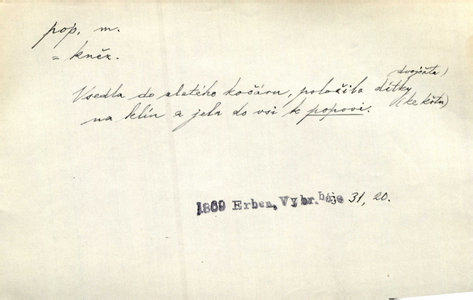 pop, m.
= kněz.
Vsedla do zlatého kočáru, položila dítky (dvojčata)
na klín a jela do vsi k popovi. (ke křtu)
1869 Erben, Vybr. báje 31, 20.